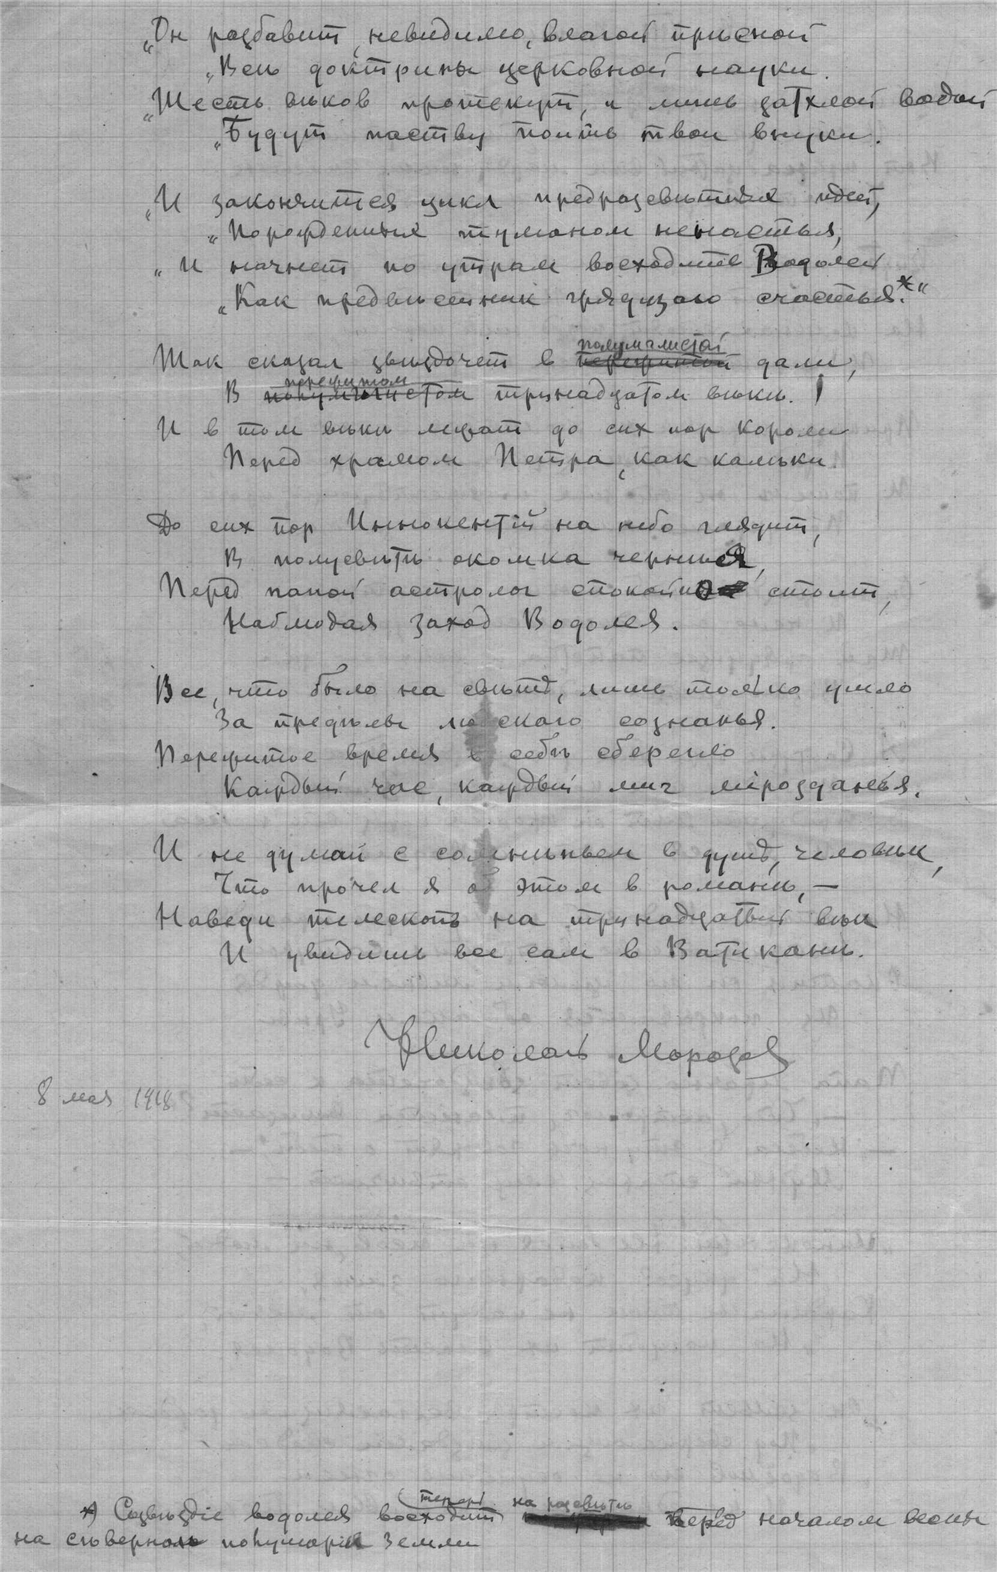 „Он разбавит, невидимо, влагой пресной
„Все доктрины церковной науки.
„Шесть вѣков протекут, и лишь затхлой водой
„Будут паству поить твои внуки.
„И закончится цикл предразсвѣтных идей,
„Порожденных туманом ненастья,
„И начнет по утрам восходить Водолей
„Как предвѣстник грядущаго счастья.*“
Так сказал звѣздочет в полумглистой дали,
В пережитом тринадцатом вѣкѣ.
И в том вѣкѣ лежат до сих пор короли
Перед храмом Петра, как калѣки.
До сих пор Иннокентій на небо глядит,
В полусвѣтѣ окошка чернѣя,
Перед папой астролог спокойно стоит,
Наблюдая заход Водолея.
Все, что было на свѣтѣ, лишь только ушло
За предѣлы людского сознанья.
Пережитое время в себѣ сберегло
Каждый час, каждый миг мірозданья.
И не думай с сомнѣньем в душѣ, человѣк,
Что прочел я об этом в романѣ, —
Наведи телескоп на тринадцатый вѣк
И увидишь все сам в Ватиканѣ.
Николай Морозов
8 мая 1918
*) Созвѣздіе водолея восходит теперь на разсвѣтѣ перед началом весны
на сѣверном полушаріи земли